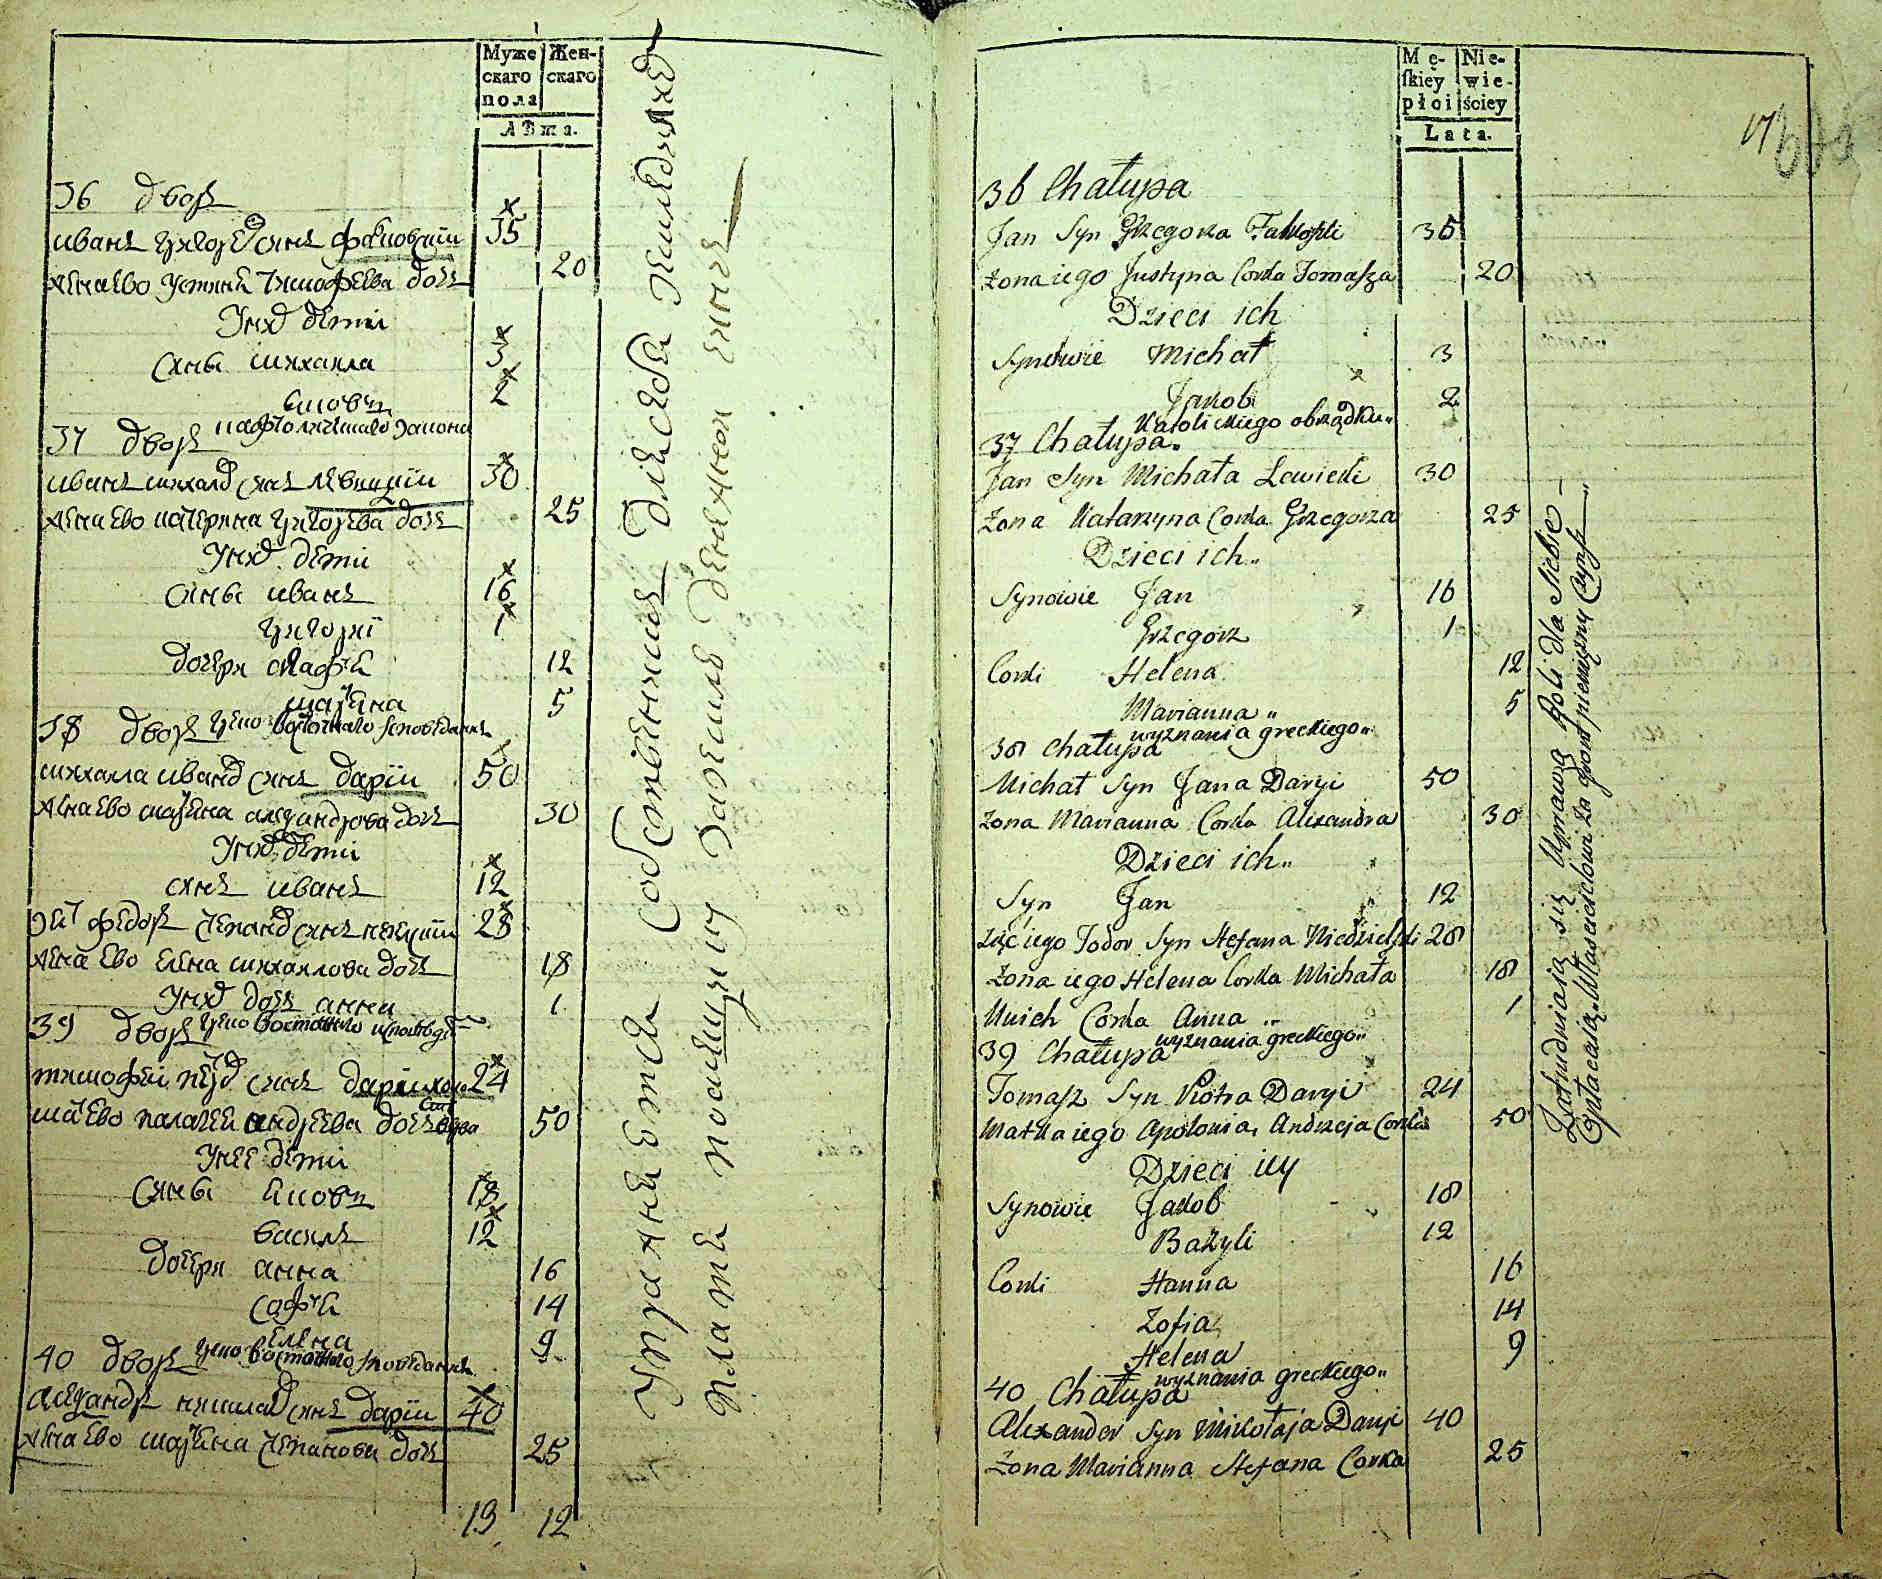 Муже
скаго
пола
Жен-
скаго
Лѣта.
36 дворъ
иванъ григорev сынъ 35
жена ево устиния тимофеева дочь 20
У них дети
сыны михаила 3
яковъ 2
37 дворъ закона
иванъ михайлов сынъ левицкїи 30
жена ево катерина григорьева дочь 25
У них дети
сыны иванъ 16
григорїи 1
дочери 12
марьяна 5
38 дворъ греко восточнаго исповѣданія
михаила иванов сынъ дарїи 50
жена ево марьяна александрова дочь 30
У них дети
сынъ иванъ 12
зять федоръ степанов сынъ 28
жена ево елена михаилова дочь 18
У них дочь анна 1
39 дворъ греко восточнаго исповѣд
тимофей петров сынъ 24
мать ево палагея андреева дочь вдова 50
У нее дети
сыны яковъ 18
василь 12
дочери анна 16
софия 14
елена 9
40 дворъ греко восточнаго исповѣданія
александръ николаев сынъ дарїи 40
жена ево марьяна степанова дочь 25
19 12
Упражняется собственнимъ для себя
платя помещику денежной
Mę-
ſkiey
płci
Nie-
wie-
ściey
Lata.
17
36 Chałupa
Jan Syn Grzegorza 35
Zona iego Justyna Corka Tomasza 20
Dzieci ich
Synowie Michał 3
Jakob 2
Katolickiego obrządku
37 Chałupa
Jan Syn Michała Lewicki 30
Zona Katarzyna Corka Grzegorza 25
Dzieci ich
Synowie Jan 16
Grzegorz 1
Corki Helena 12
Marianna 5
wyznania greckiego
38 Chałupa
Michał Syn Jana Daryi 50
Zona Marianna Corka Alixandra 30
Dzieci ich
Syn Jan 12
Zięć iego Fodor Syn Stefana Niedzielski 28
Zona iego Helena Corka Michała 18
Unich Corka Anna 1
wyznania greckiego
39 Chałupa
Tomasz Syn Piotra Daryi 24
Matka iego Apolonia Andrzeja Corka 50
Dzieci iey
Synowie Jakob 18
Bazyli 12
Corki Hanna 16
Zofia 14
Helena 9
wyznania greckiego
40 Chałupa
Alixander Syn Mikołaja Daryi 40
Zona Marianna Stefana Corka 25
Zatrudniaią się Uprawą Roli dla Siebie
Opłacaią Właścicielowi za gront pieniężny Czynsz